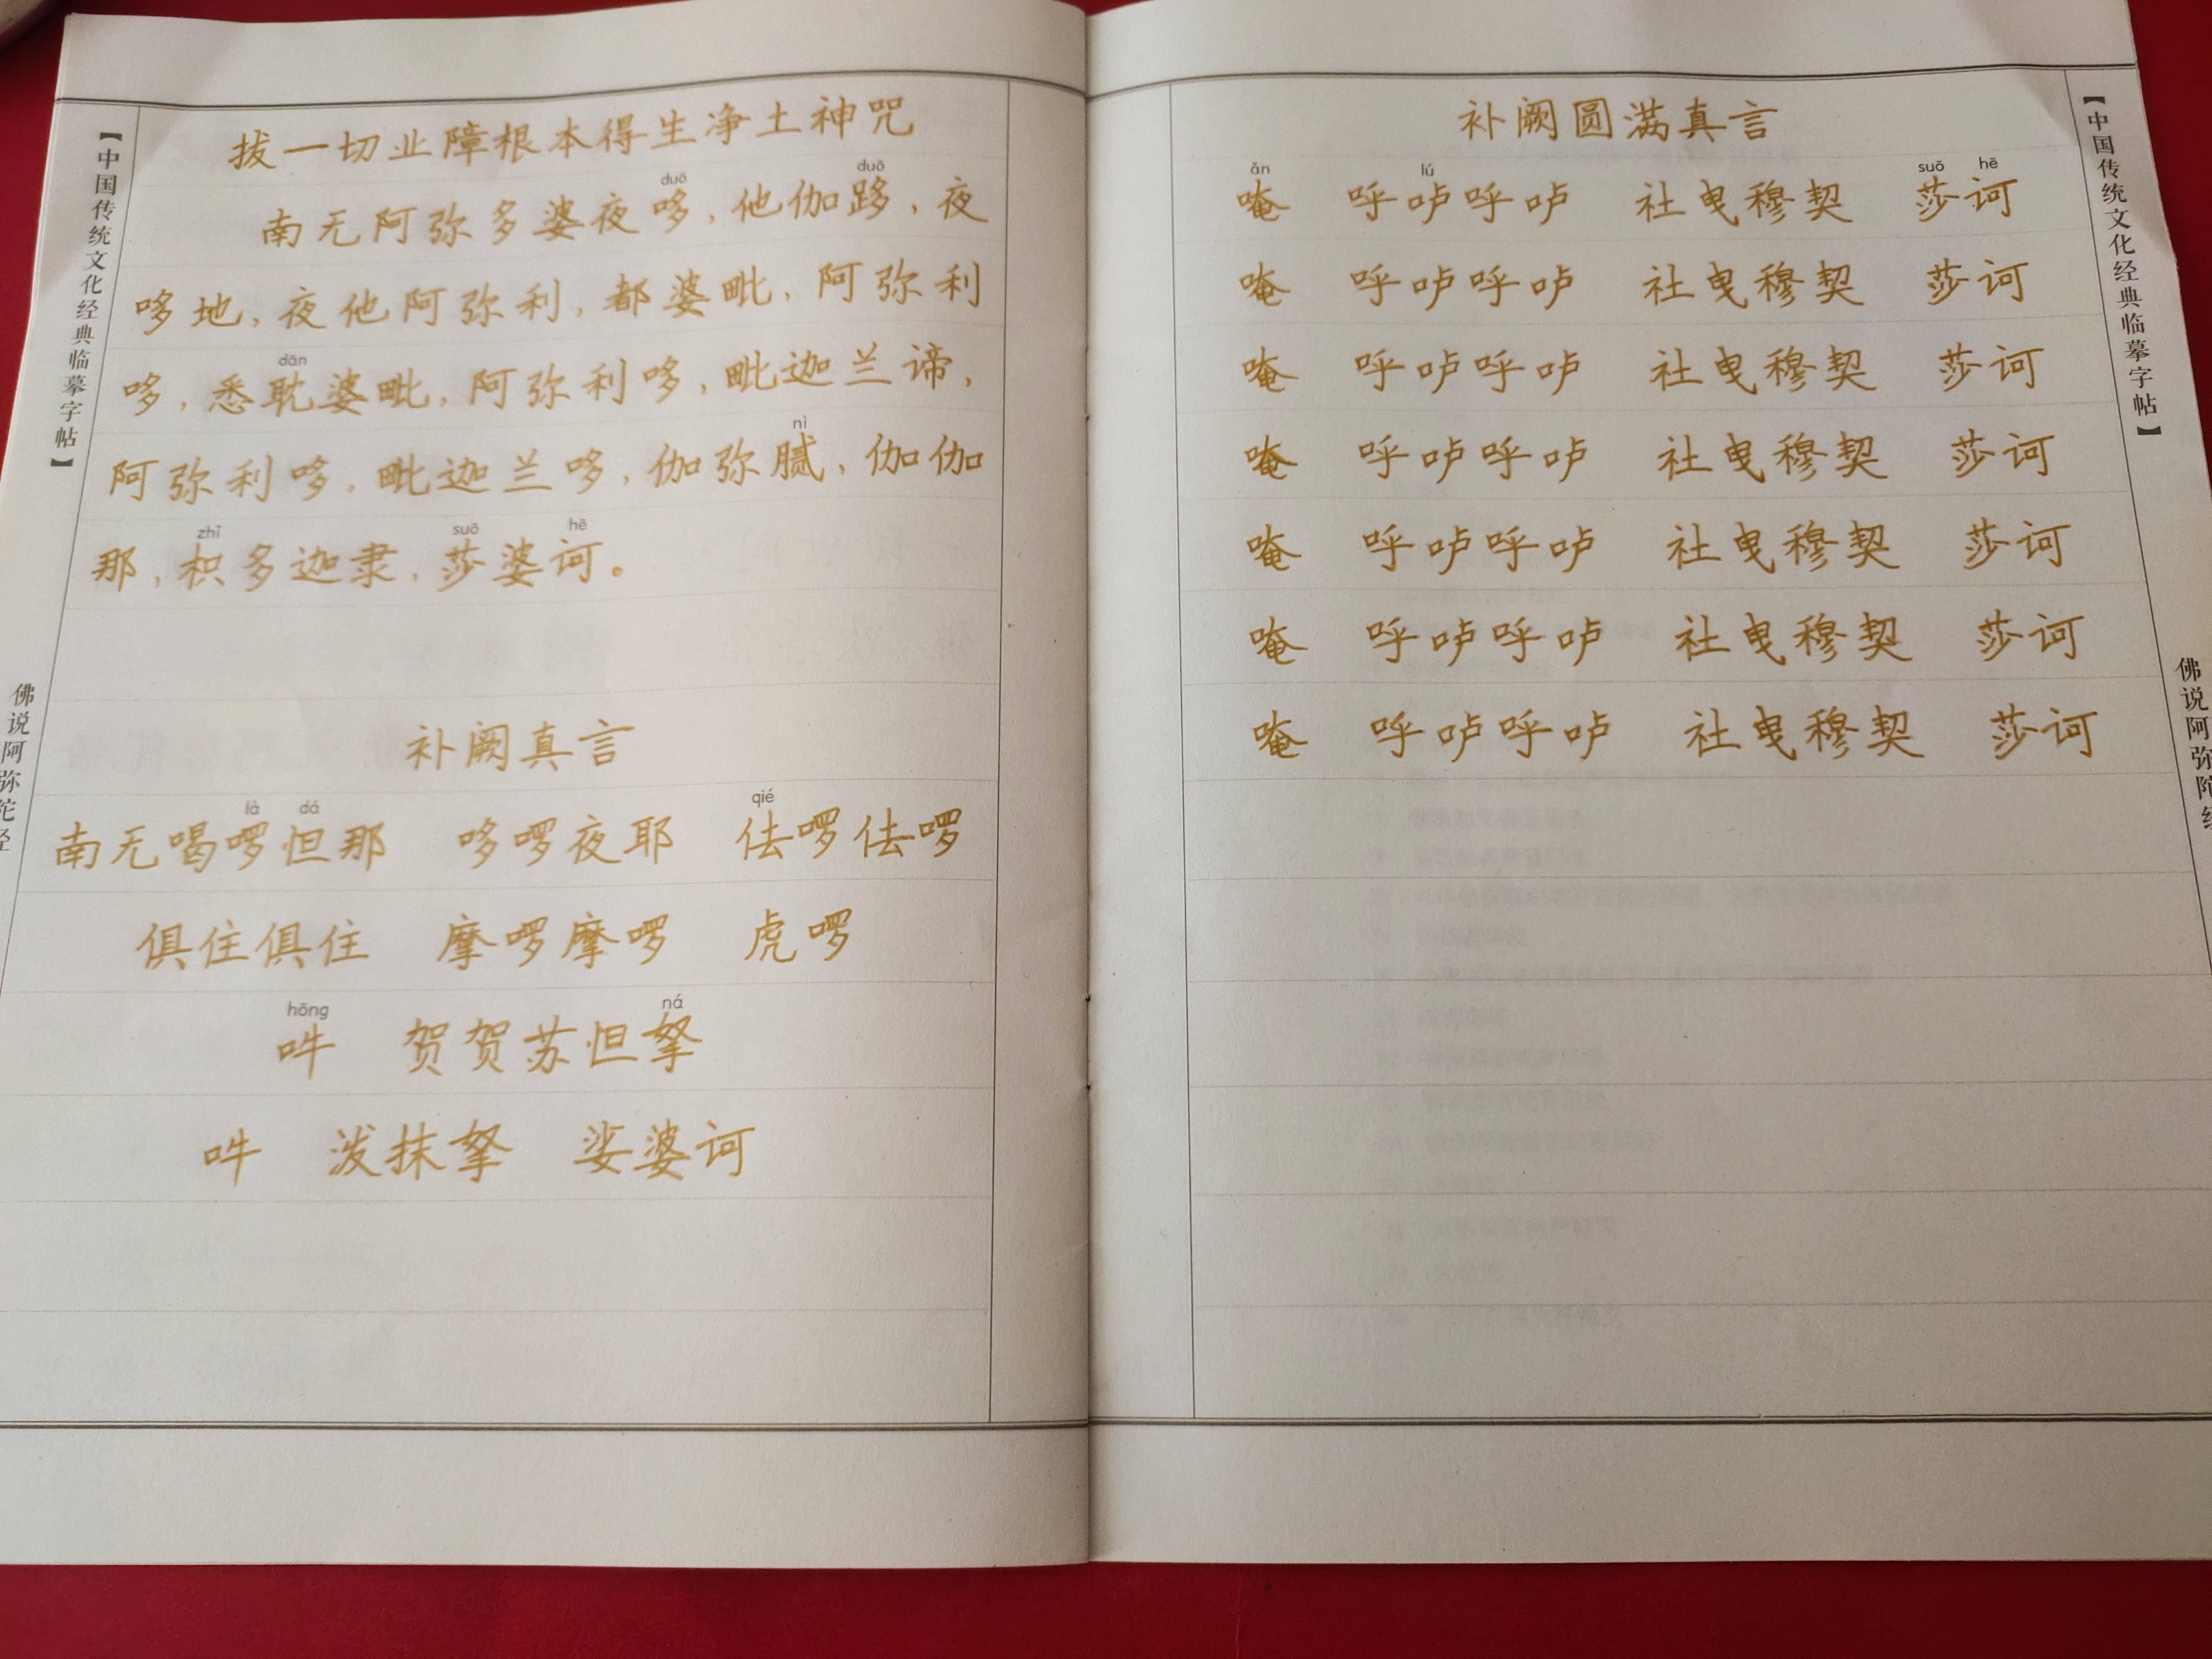 【中国传统文化经典临摹字帖】
佛说阿弥陀经
拔一切业障根本得生净土神咒
duō duō
南无阿弥多婆夜哆，他伽跢，夜
哆地，夜他阿弥利，都婆毗，阿弥利
dān
哆，悉耽婆毗，阿弥利哆，毗迦兰谛，
nì
阿弥利哆，毗迦兰哆，伽弥腻，伽伽
zhǐ suō hē
那，枳多迦隶，莎婆诃。
补阙真言
là dá qié
南无喝啰怛那 哆啰夜耶 佉啰佉啰
俱住俱住 摩啰摩啰 虎啰
hōng ná
吽 贺贺苏怛拏
吽 泼抹拏 娑婆诃
补阙圆满真言
ǎn lú suō hē
唵 呼嚧呼嚧 社曳穆契 莎诃
唵 呼嚧呼嚧 社曳穆契 莎诃
唵 呼嚧呼嚧 社曳穆契 莎诃
唵 呼嚧呼嚧 社曳穆契 莎诃
唵 呼嚧呼嚧 社曳穆契 莎诃
唵 呼嚧呼嚧 社曳穆契 莎诃
唵 呼嚧呼嚧 社曳穆契 莎诃
【中国传统文化经典临摹字帖】
佛说阿弥陀经